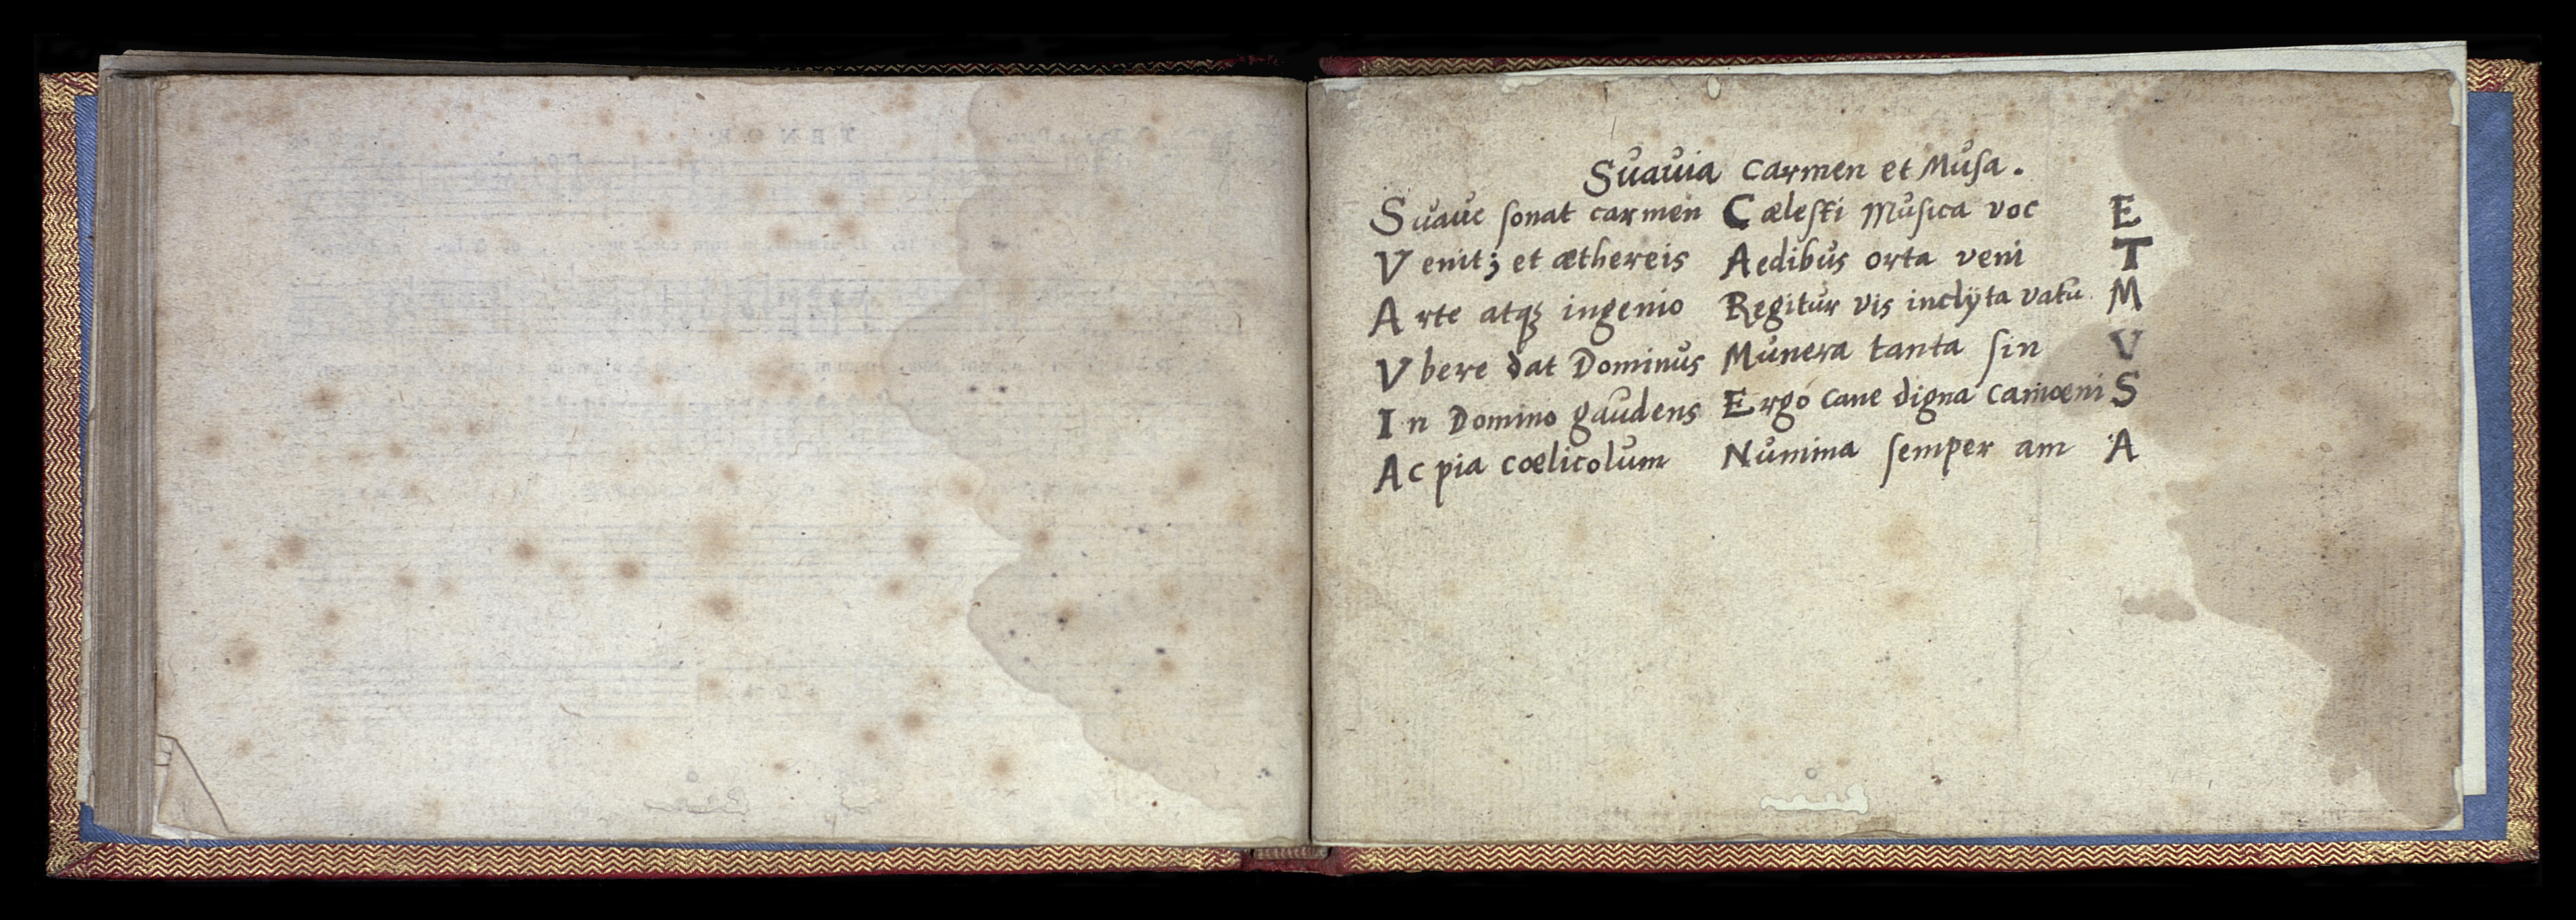 TENOR
Suauia carmen et Musa.
Suaue sonat carmen Cælesti Musica voc E
Venit; et æthereis Aedibus orta veni T
Arte atqꝫ ingenio Regitur vis inclÿta vatū M
Vbere dat Dominus Munera tanta sin V
In Domino gaudens Ergo cane digna camœni S
Ac pia cœlicolum Numina semper am A